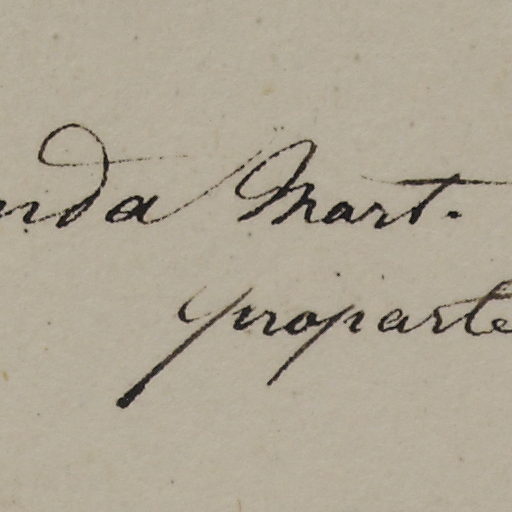 nda Mart.
proparte